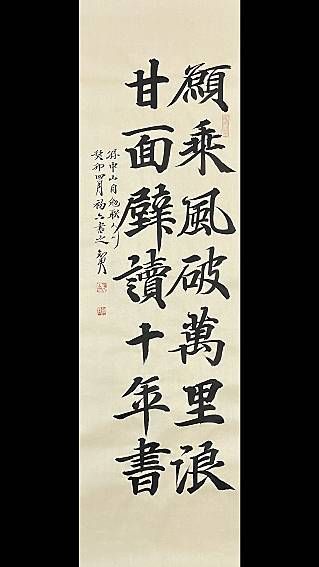 願乘風破萬里浪
甘面壁讀十年書
孫中山自勉聯
癸卯四月 書之